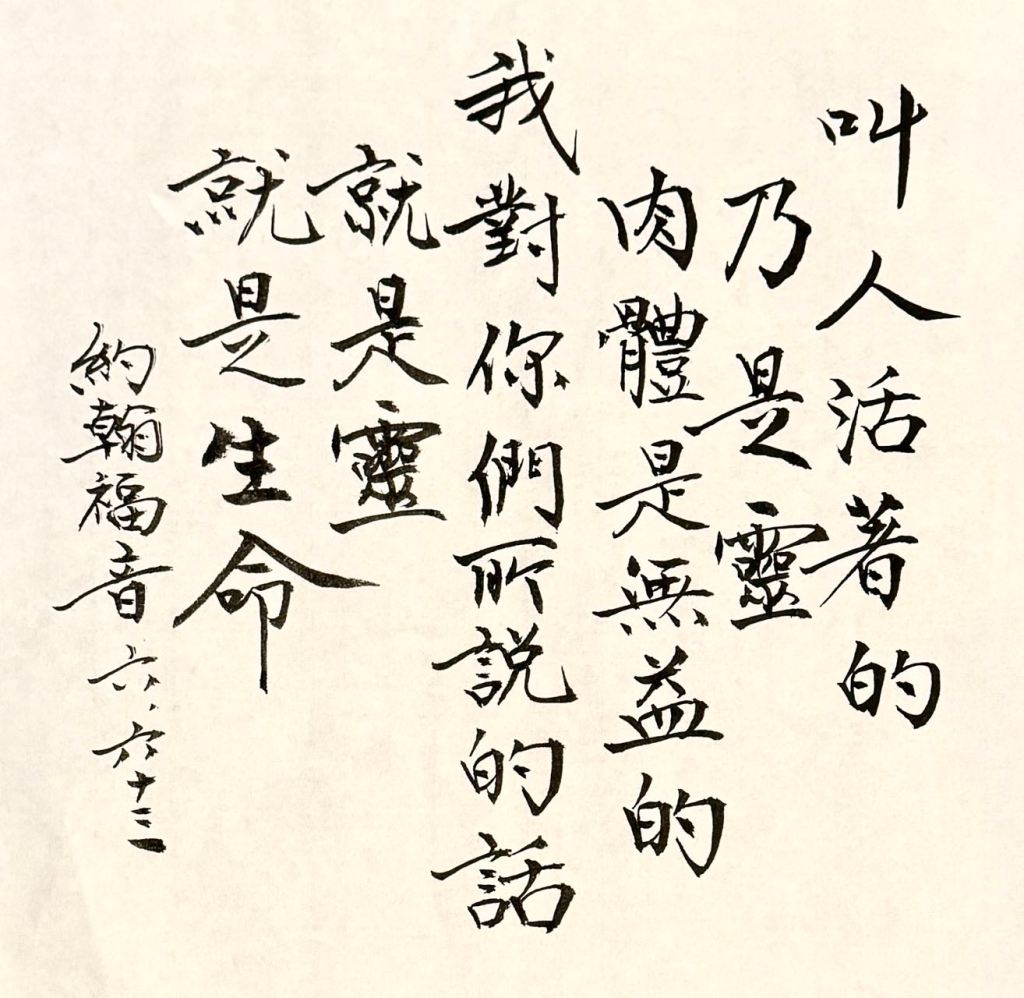 叫人活著的
乃是靈
肉體是無益的
我對你們所説的話
就是靈
就是生命
約翰福音六．六十三